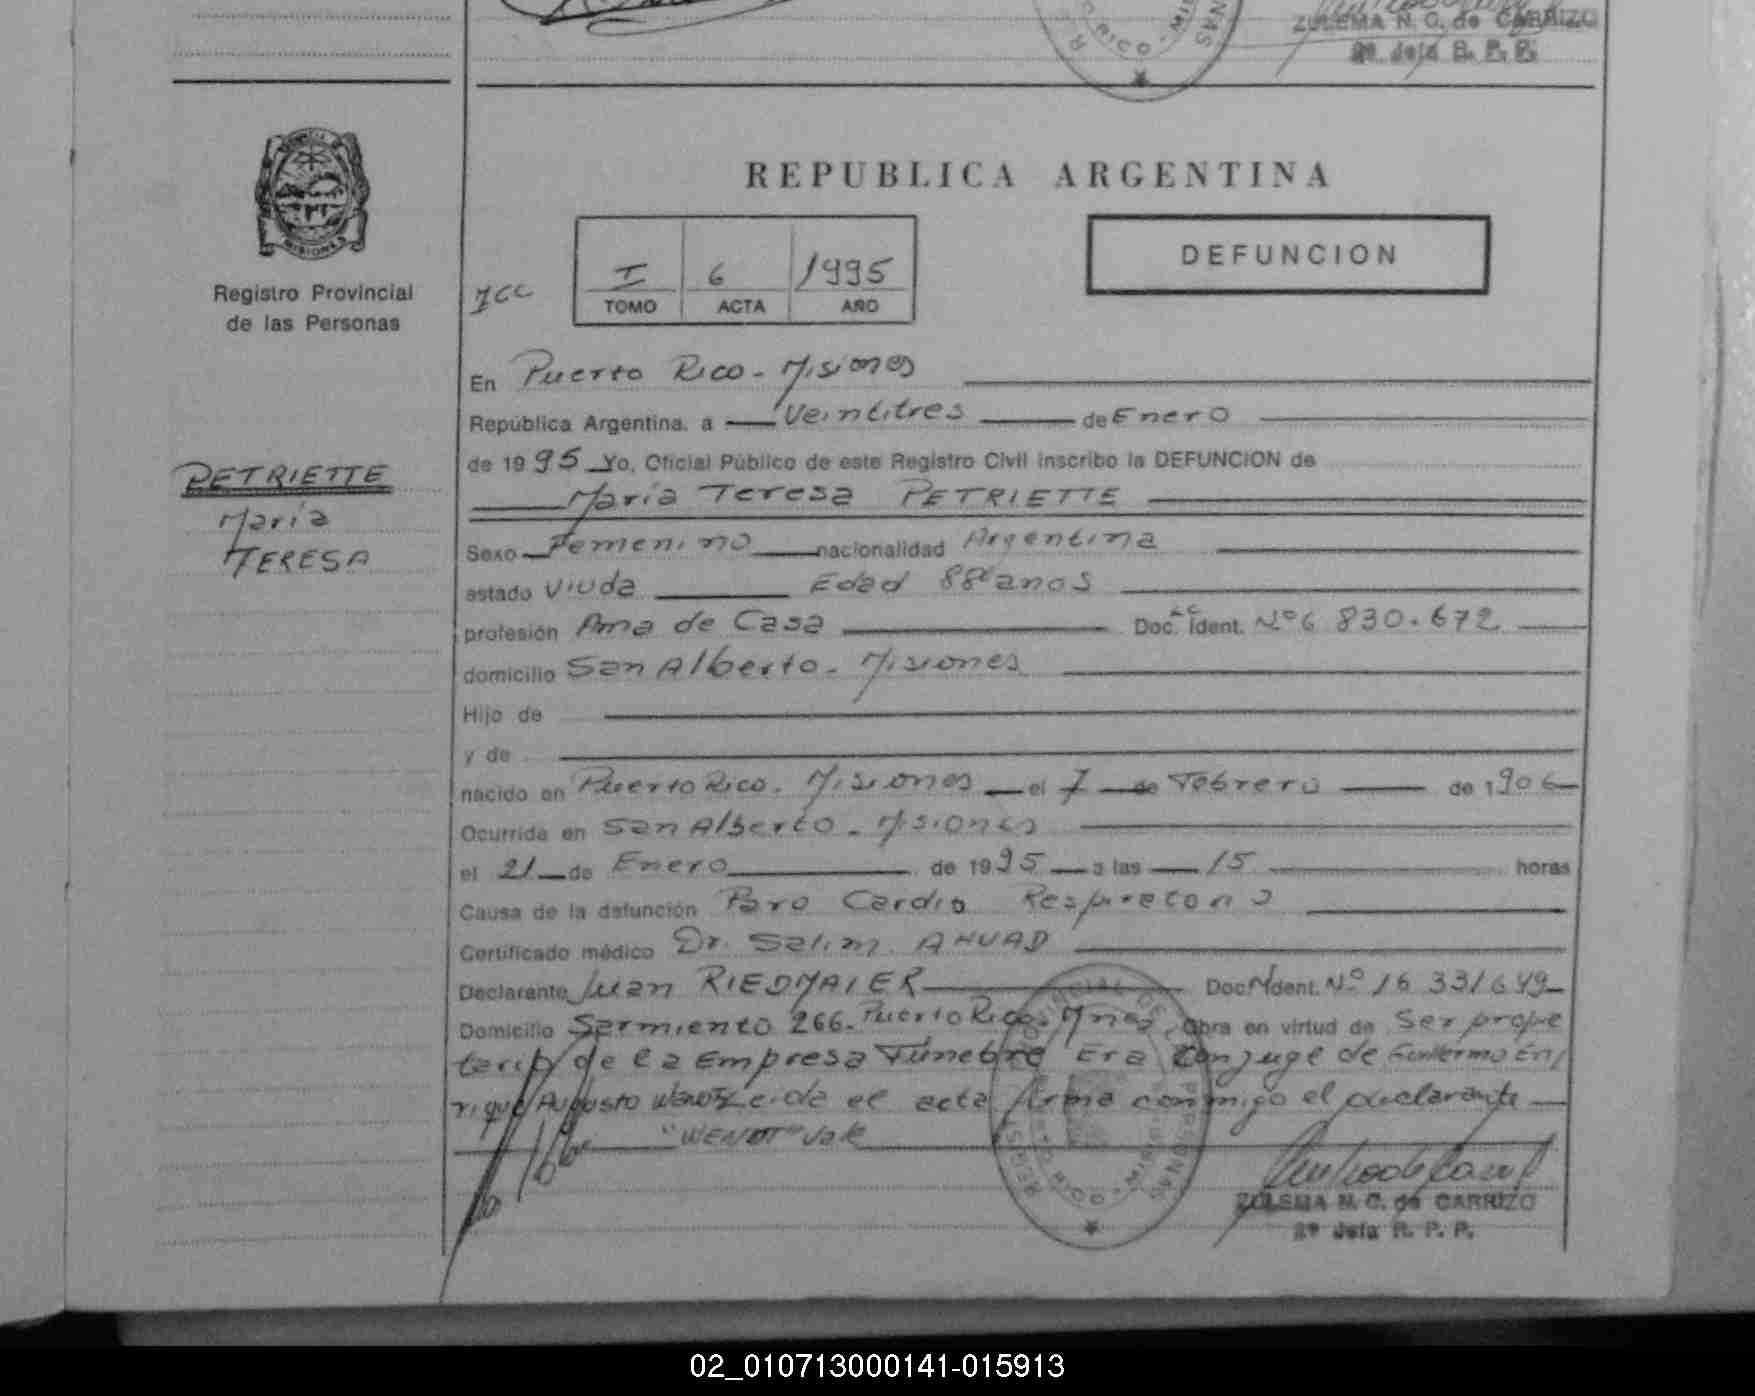 ZULEMA N. C. de CARRIZO
2º Jefa R. P. P.
PROVINCIA
MISIONES
Registro Provincial
de las Personas
PETRIETTE
María
TERESA
REPUBLICA ARGENTINA
I 6 1995
TOMO ACTA AÑO
DEFUNCION
En Puerto Rico - Misiones
República Argentina, a Veintitres de Enero
de 1995 Yo, Oficial Público de este Registro Civil inscribo la DEFUNCION de
María Teresa PETRIETTE
Sexo Femenino nacionalidad Argentina
estado Viuda Edad 88 anos
profesión Ama de Casa Doc. LC Ident. Nº 6 830.672
domicilio San Alberto - Misiones
Hijo de
y de
nacido en Puerto Rico - Misiones el 7 de Febrero de 1906
Ocurrida en San Alberto - Misiones
el 21 de Enero de 1995 a las 15 horas
Causa de la defunción Paro Cardio Respiratorio
Certificado médico Dr. Salim AHUAD
Declarante Juan RIEDMAIER Doc. Ident. Nº 16 331649
Domicilio Sarmiento 266 - Puerto Rico - Mnes. Obra en virtud de Ser propie
tario de la Empresa Fúnebre Era Conjuge de Guillermo En
rique Augusto Wendt Leida el acta firma conmigo el declarante
"WENDT" Vale
ZULEMA N. C. de CARRIZO
2º Jefa R. P. P.
02_010713000141-015913